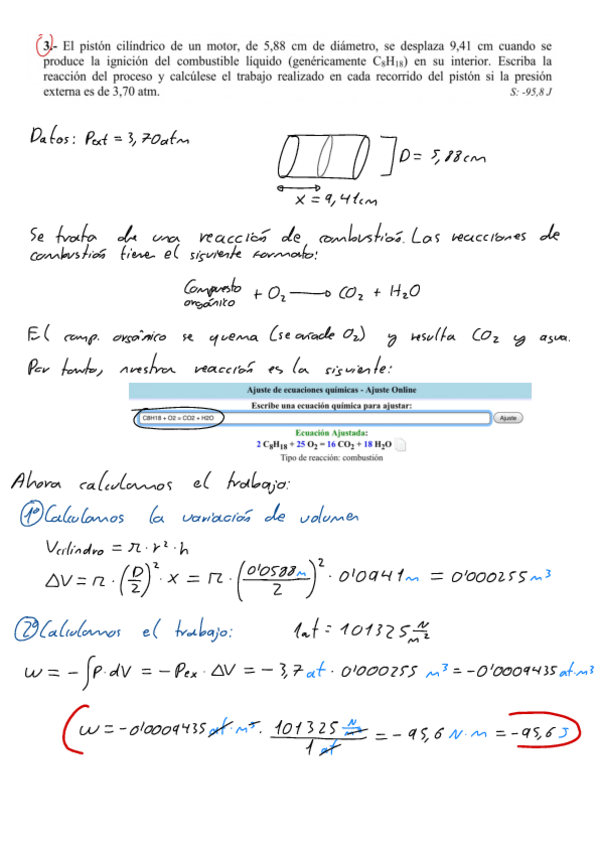 3.- El pistón cilíndrico de un motor, de 5,88 cm de diámetro, se desplaza 9,41 cm cuando se
produce la ignición del combustible líquido (genéricamente C₈H₁₈) en su interior. Escriba la
reacción del proceso y calcúlese el trabajo realizado en cada recorrido del pistón si la presión
externa es de 3,70 atm. S: -95,8 J
Datos: Pext = 3,70atm
D = 5,88cm
x = 9,41cm
Se trata de una reacción de combustión. Las reacciones de
combustión tienen el siguiente formato:
Compuesto orgánico + O₂ → CO₂ + H₂O
El comp. orgánico se quema (se añade O₂) y resulta CO₂ y agua.
Por tanto, nuestra reacción es la siguiente:
Ajuste de ecuaciones químicas - Ajuste Online
Escribe una ecuación química para ajustar:
C8H18 + O2 = CO2 + H2O Ajuste
Ecuación Ajustada:
2 C₈H₁₈ + 25 O₂ = 16 CO₂ + 18 H₂O
Tipo de reacción: combustión
Ahora calculamos el trabajo:
1º Calculamos la variación de volumen
Vcilindro = π · r² · h
ΔV = π · (D/2)² · x = π · (0'0588m/2)² · 0'0941m = 0'000255 m³
2º Calculamos el trabajo: 1at = 101325 N/m²
w = -∫P·dV = -Pex · ΔV = -3,7 at · 0'000255 m³ = -0'0009435 at·m³
w = -0'0009435 at·m³ · 101325 N/m² / 1 at = -95,6 N·m = -95,6 J